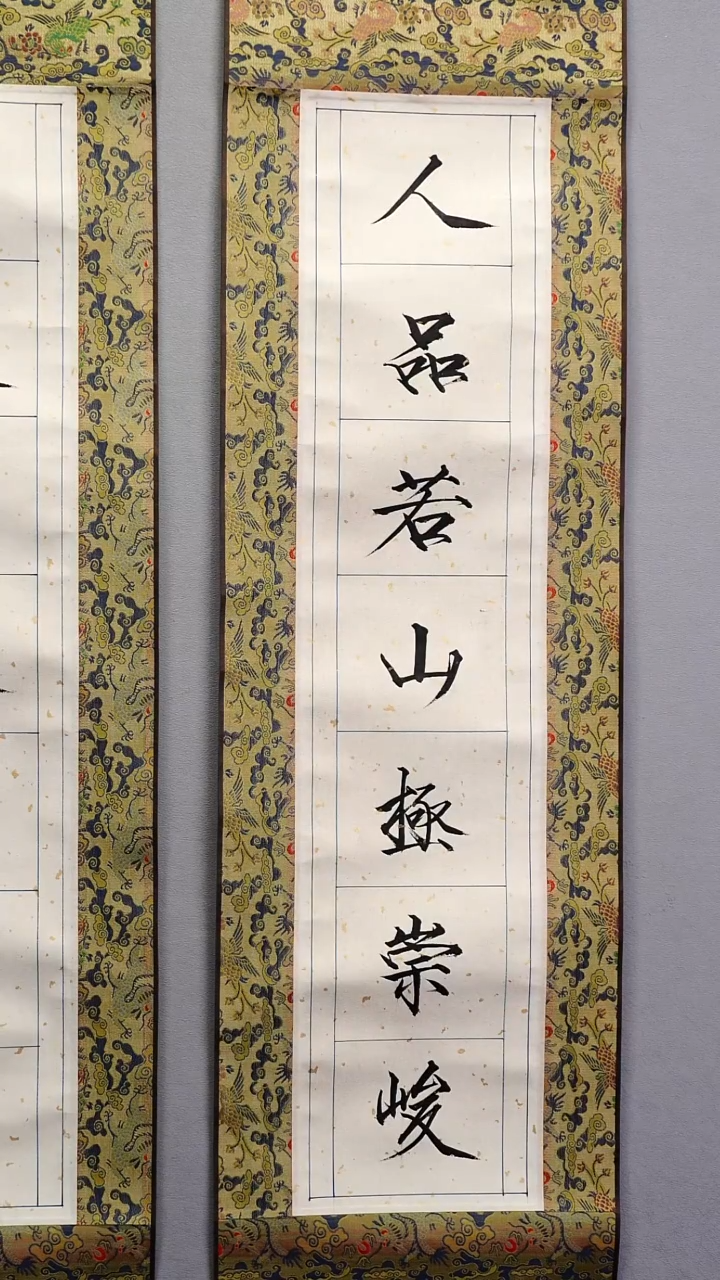 人品若山極崇峻